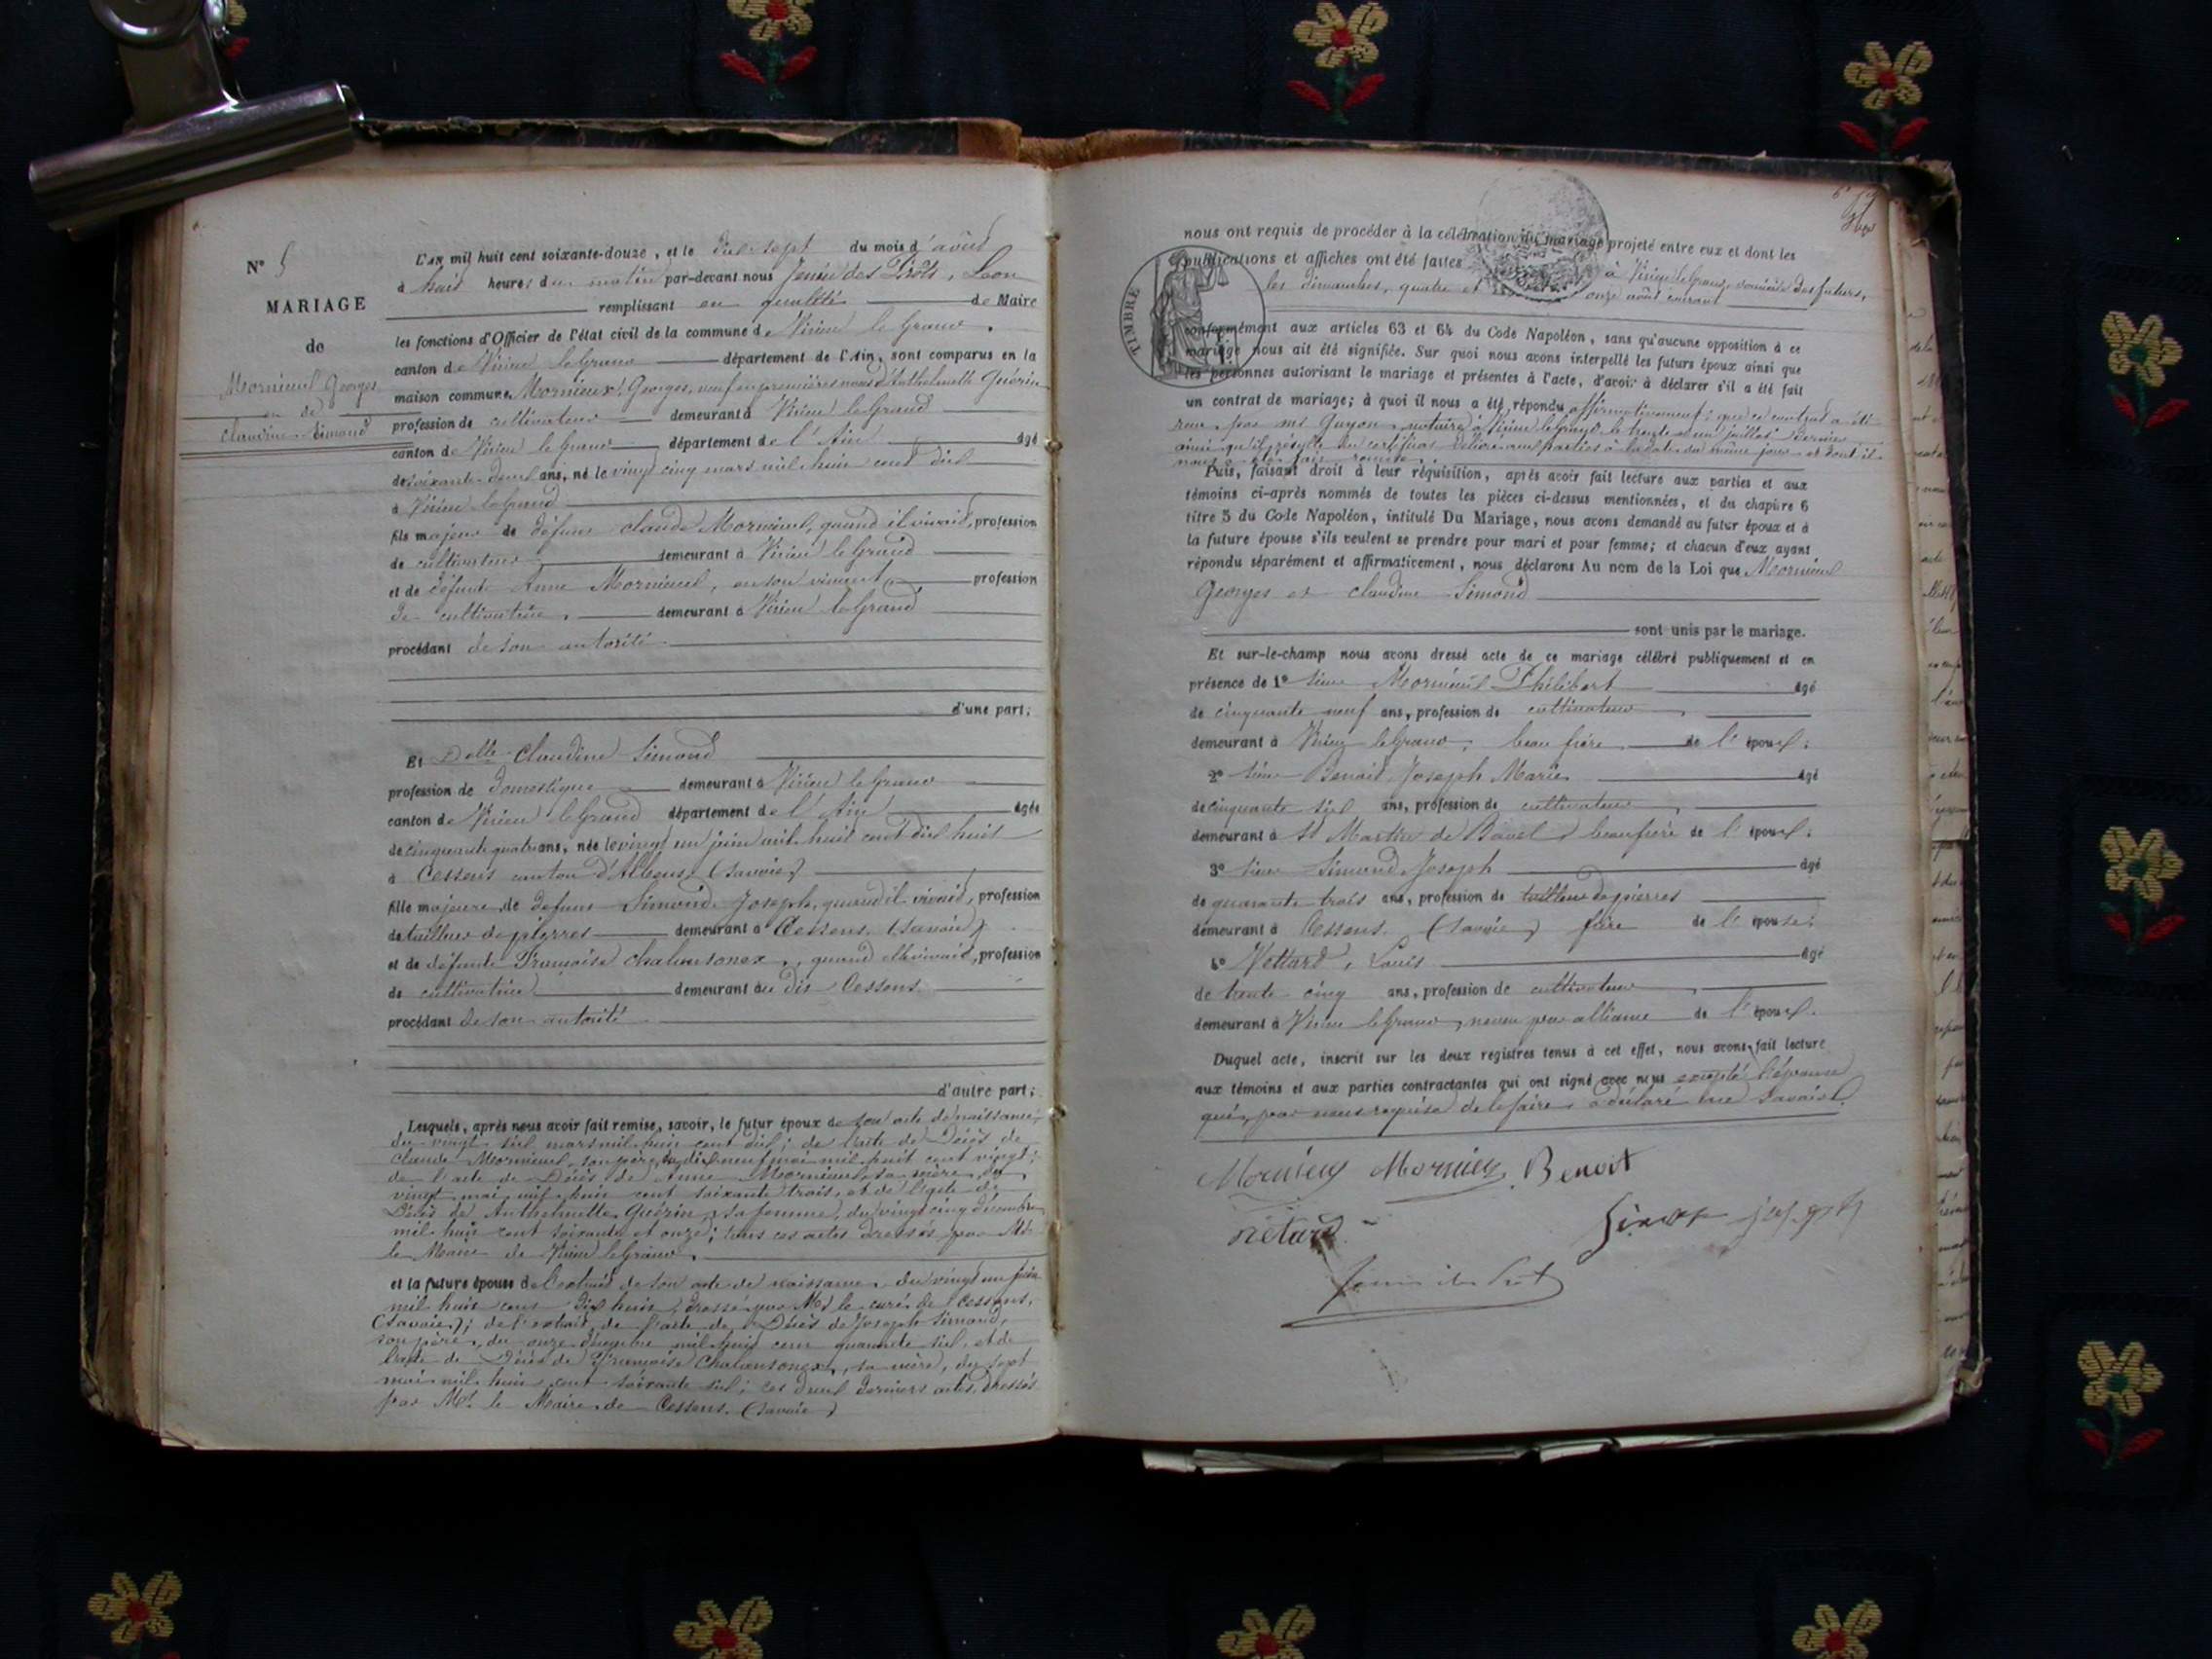 N° 5
MARIAGE
de
Mornieux Georges
et de
Claudine Simond
L'AN mil huit cent soixante-douze, et le dix-sept du mois d'août
à huit heures du matin par-devant nous Jenin des Prots, Leon
remplissant en qualité de Maire
les fonctions d'Officier de l'état civil de la commune de Virieu le Grand.
canton de Virieu le Grand département de l'Ain, sont comparus en la
maison commune Mornieux Georges, veuf en premières noces d'Anthelmette Guérin
profession de cultivateur demeurant à Virieu le Grand
canton de Virieu le Grand département de l'Ain âgé
de soixante-deux ans, né le vingt cinq mars mil huit cent dix
à Virieu le Grand
fils majeur de défunt Claude Mornieux, quand il vivait, profession
de cultivateur demeurant à Virieu le Grand
et de défunte Anne Mornieux, en son vivant profession
de cultivatrice, demeurant à Virieu le Grand
procédant de son autorité
d'une part;
Et Delle Claudine Simond
profession de domestique demeurant à Virieu le Grand
canton de Virieu le Grand département de l'Ain âgée
de cinquante quatre ans, née le vingt un juin mil huit cent dix huit
à Cessens canton d'Albens (Savoie)
fille majeure de défunt Simond Joseph, quand il vivait, profession
de tailleur de pierres demeurant à Cessens (Savoie)
et de défunte Françoise Chalansonex, quand elle vivait, profession
de cultivatrice demeurant au dit Cessens
procédant de son autorité
d'autre part;
Lesquels, après nous avoir fait remise, savoir, le futur époux de son acte de naissance,
du vingt six mars mil huit cent dix; de l'acte de Décès de
Claude Mornieux, son père, du dix neuf mai mil huit cent vingt;
de l'acte de Décès de Anne Mornieux, sa mère, du
vingt mai mil huit cent soixante trois, et de l'acte de
Décès de Anthelmette Guérin, sa femme, du vingt cinq décembre
mil huit cent soixante et onze; tous ces actes dressés par Mr
le Maire de Virieu le Grand.
et la future épouse de l'extrait de son acte de naissance du vingt un juin
mil huit cent dix huit, dressé par Mr le curé de Cessens,
(Savoie); de l'extrait de l'acte de Décès de Joseph Simond,
son père, du onze décembre mil huit cent quarante six, et de
l'acte de Décès de Françoise Chalansonex, sa mère, du sept
mai mil huit cent soixante six; ces deux derniers actes dressés
par Mr le Maire de Cessens (Savoie)
nous ont requis de procéder à la célébration du mariage projeté entre eux et dont les
publications et affiches ont été faites à Virieu le Grand, domicile des futurs,
les dimanches, quatre et onze août courant
TIMBRE
conformément aux articles 63 et 64 du Code Napoléon, sans qu'aucune opposition à ce
mariage nous ait été signifiée. Sur quoi nous avons interpellé les futurs époux ainsi que
les personnes autorisant le mariage et présentes à l'acte, d'avoir à déclarer s'il a été fait
un contrat de mariage; à quoi il nous a été répondu affirmativement; que ce contrat a été
reçu par me Guyon, notaire à Virieu le Grand le trente et un juillet dernier
ainsi qu'il résulte du certificat délivré aux parties à la date du même jour et dont il
nous a été fait remise.
Puis, faisant droit à leur réquisition, après avoir fait lecture aux parties et aux
témoins ci-après nommés de toutes les pièces ci-dessus mentionnées, et du chapitre 6
titre 5 du Code Napoléon, intitulé Du Mariage, nous avons demandé au futur époux et à
la future épouse s'ils veulent se prendre pour mari et pour femme; et chacun d'eux ayant
répondu séparément et affirmativement, nous déclarons Au nom de la Loi que Mornieux
Georges et Claudine Simond
sont unis par le mariage.
Et sur-le-champ nous avons dressé acte de ce mariage célébré publiquement et en
présence de 1° sieur Mornieux Philibert âgé
de cinquante neuf ans, profession de cultivateur,
demeurant à Virieu le Grand, beau frère de l'époux;
2° sieur Benoit Joseph Marie âgé
de cinquante six ans, profession de cultivateur,
demeurant à St Martin de Bavel, beau frère de l'époux;
3° sieur Simond Joseph âgé
de quarante trois ans, profession de tailleur de pierres
demeurant à Cessens (Savoie) frère de l'épouse;
4° Nettard, Louis âgé
de trente cinq ans, profession de cultivateur,
demeurant à Virieu le Grand, neveu par alliance de l'époux.
Duquel acte, inscrit sur les deux registres tenus à cet effet, nous avons fait lecture
aux témoins et aux parties contractantes qui ont signé avec nous excepté l'épouse
qui, par nous requise de le faire, a déclaré ne savoir.
Mornieux Mornieux Benoit
netard Simond joseph